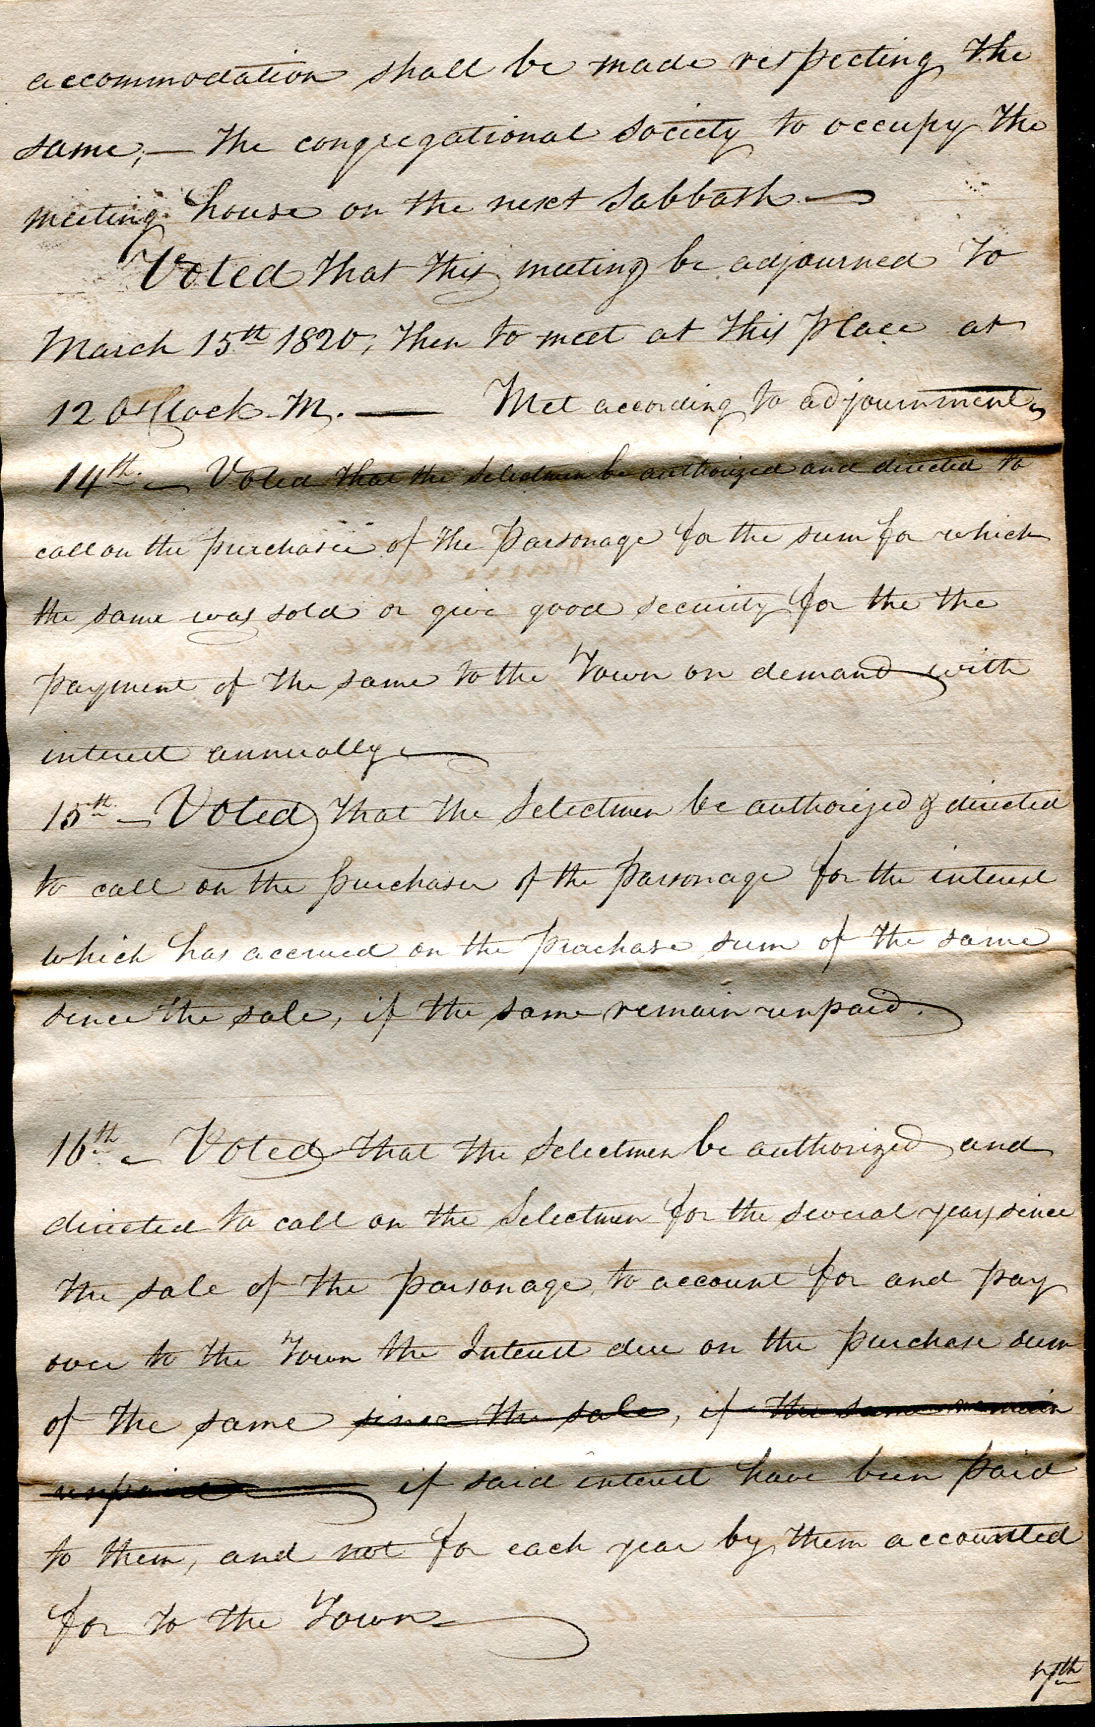 accommodation shall be made respecting the
same,— the congregational society to occupy the
meeting house on the next Sabbath —
Voted that this meeting be adjourned to
March 15th 1820, then to meet at this place at
12 O'Clock M. — Met according to adjournment,
14th — Voted that the Selectmen be authorized and directed to
call on the purchaser of the Parsonage for the sum for which
the same was sold or give good security for the the
payment of the same to the Town on demand with
interest annually —
15th — Voted that the Selectmen be authorized & directed
to call on the purchaser of the Parsonage for the interest
which has accrued on the purchase sum of the same
since the sale, if the same remain unpaid.
16th — Voted that the Selectmen be authorized and
directed to call on the Selectmen for the several years since
the sale of the parsonage, to account for and pay
over to the Town the Interest due on the purchase sum
of the same since the sale, if the same remain
unpaid — if said interest have been paid
to them, and not for each year by them accounted
for to the Town —
17th